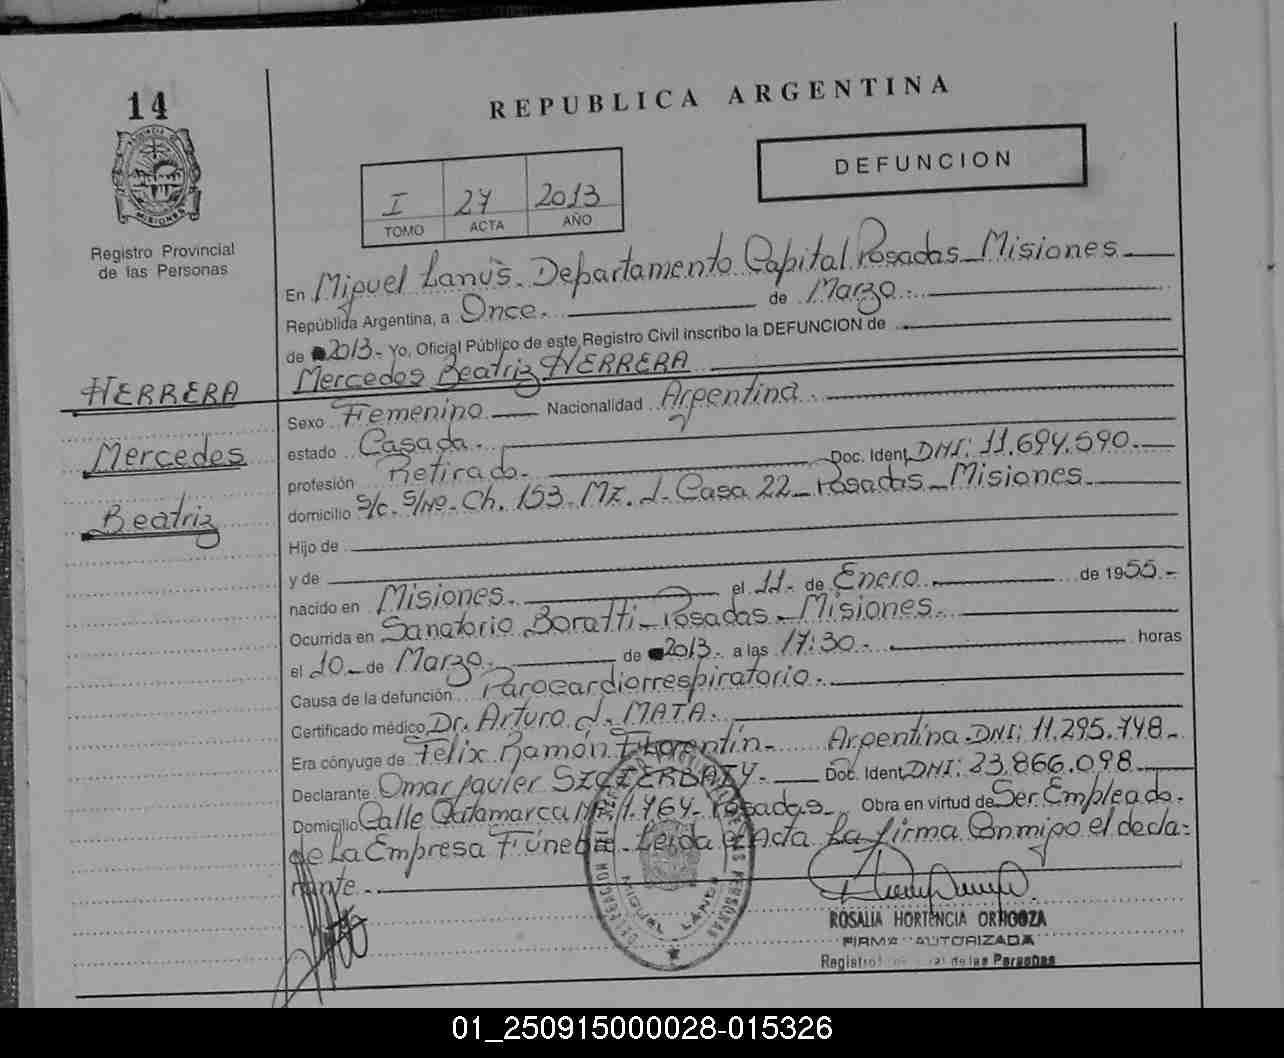 14
REPUBLICA ARGENTINA
PROVINCIA DE
MISIONES
DEFUNCION
I 27 2013
TOMO ACTA AÑO
Registro Provincial
de las Personas
En Miguel Lanús. Departamento Capital Posadas Misiones
República Argentina, a Once. de Marzo.
de 2013- Yo, Oficial Público de este Registro Civil inscribo la DEFUNCION de
Mercedes Beatriz HERRERA
HERRERA
Mercedes
Beatriz
Sexo Femenino Nacionalidad Argentina
estado Casada.
profesión Retirado. Doc. Ident. DNI: 11.694.590.
domicilio S/c. S/No. Ch. 153. Mz. J. Casa 22 Posadas Misiones
Hijo de
y de
nacido en Misiones. el 11- de Enero de 1955.-
Ocurrida en Sanatorio Boratti Posadas Misiones.
el 10 de Marzo. de 2013. a las 17:30 horas
Causa de la defunción Parocardiorrespiratorio.
Certificado médico Dr. Arturo J. MATA.
Era cónyuge de Felix Ramón Florentín Argentina DNI: 11.295.748-
Declarante Omar Javier Doc. Ident. DNI: 23.866.098
Domicilio Calle Catamarca Nº 1.764- Posadas Obra en virtud de Ser. Empleado.
de La Empresa Fúnebre. Leída el Acta La firma Conmigo el decla=
rante.
MIGUEL LANUS
ROSALIA HORTENCIA ORTIGOZA
FIRMA AUTORIZADA
Registro de las Personas
01_250915000028-015326